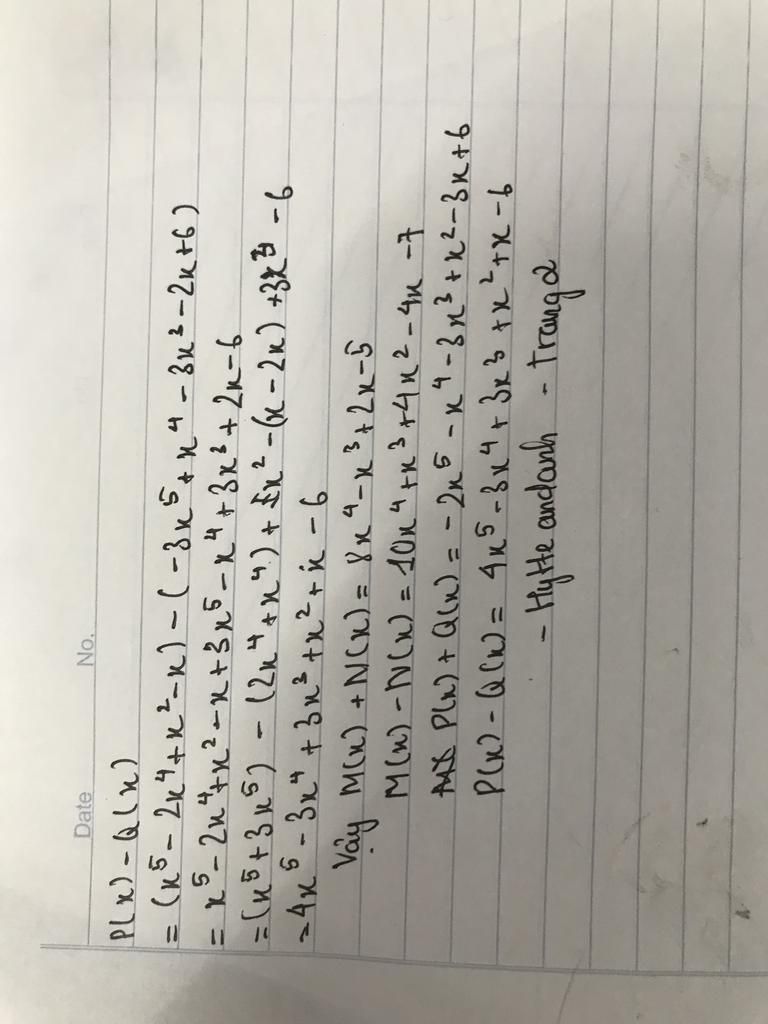 Date No.
P(x) - Q(x)
= (x⁵ - 2x⁴ + x² - x) - (-3x⁵ + x⁴ - 3x³ - 2x + 6)
= x⁵ - 2x⁴ + x² - x + 3x⁵ - x⁴ + 3x³ + 2x - 6
= (x⁵ + 3x⁵) - (2x⁴ + x⁴) + x² - (x - 2x) + 3x³ - 6
= 4x⁵ - 3x⁴ + 3x³ + x² + x - 6
Vậy M(x) + N(x) = 8x⁴ - x³ + 2x - 5
M(x) - N(x) = 10x⁴ + x³ + 4x² - 4x - 7
P(x) + Q(x) = -2x⁵ - x⁴ - 3x³ + x² - 3x + 6
P(x) - Q(x) = 4x⁵ - 3x⁴ + 3x³ + x² + x - 6
- Hytte andanh - Trang 2